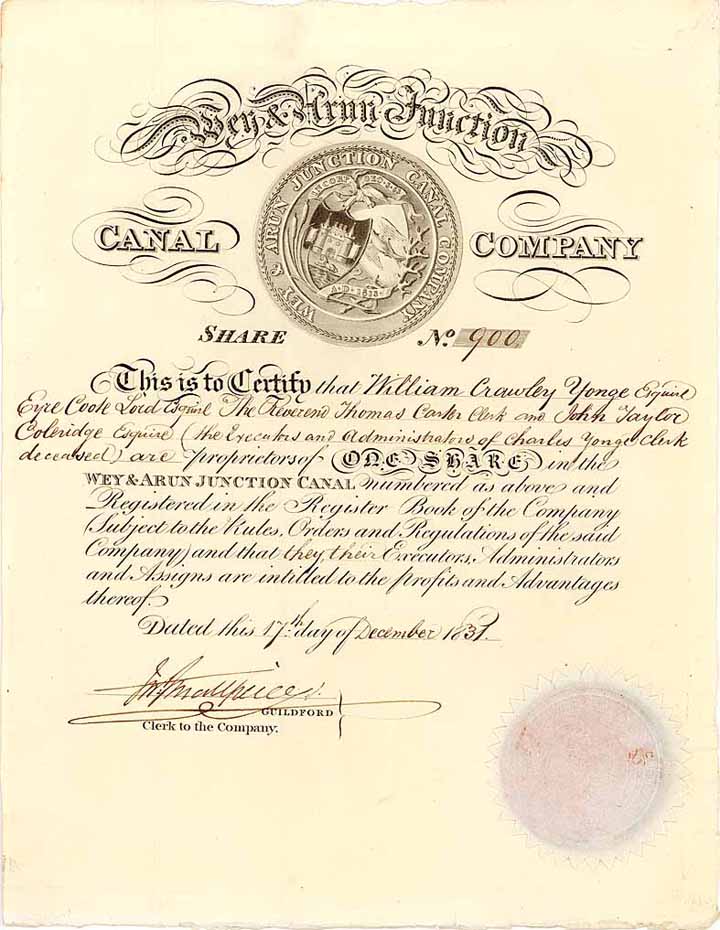 Wey & Arun Junction
CANAL COMPANY
WEY & ARUN JUNCTION CANAL COMPANY
A.D. 1813
SHARE No. 900
This is to Certify that William Crawley Yonge Esquire
Eyre Coote Lord Esquire The Reverend Thomas Carter Clerk and John Taylor
Coleridge Esquire (the Executors and Administrators of Charles Yonge Clerk
deceased) are proprietors of ONE SHARE in the
WEY & ARUN JUNCTION CANAL numbered as above and
Registered in the Register Book of the Company
(Subject to the Rules, Orders and Regulations of the said
Company) and that they, their Executors, Administrators
and Assigns are intitled to the profits and Advantages
thereof.
Dated this 17th day of December 1831.
GUILDFORD
Clerk to the Company.